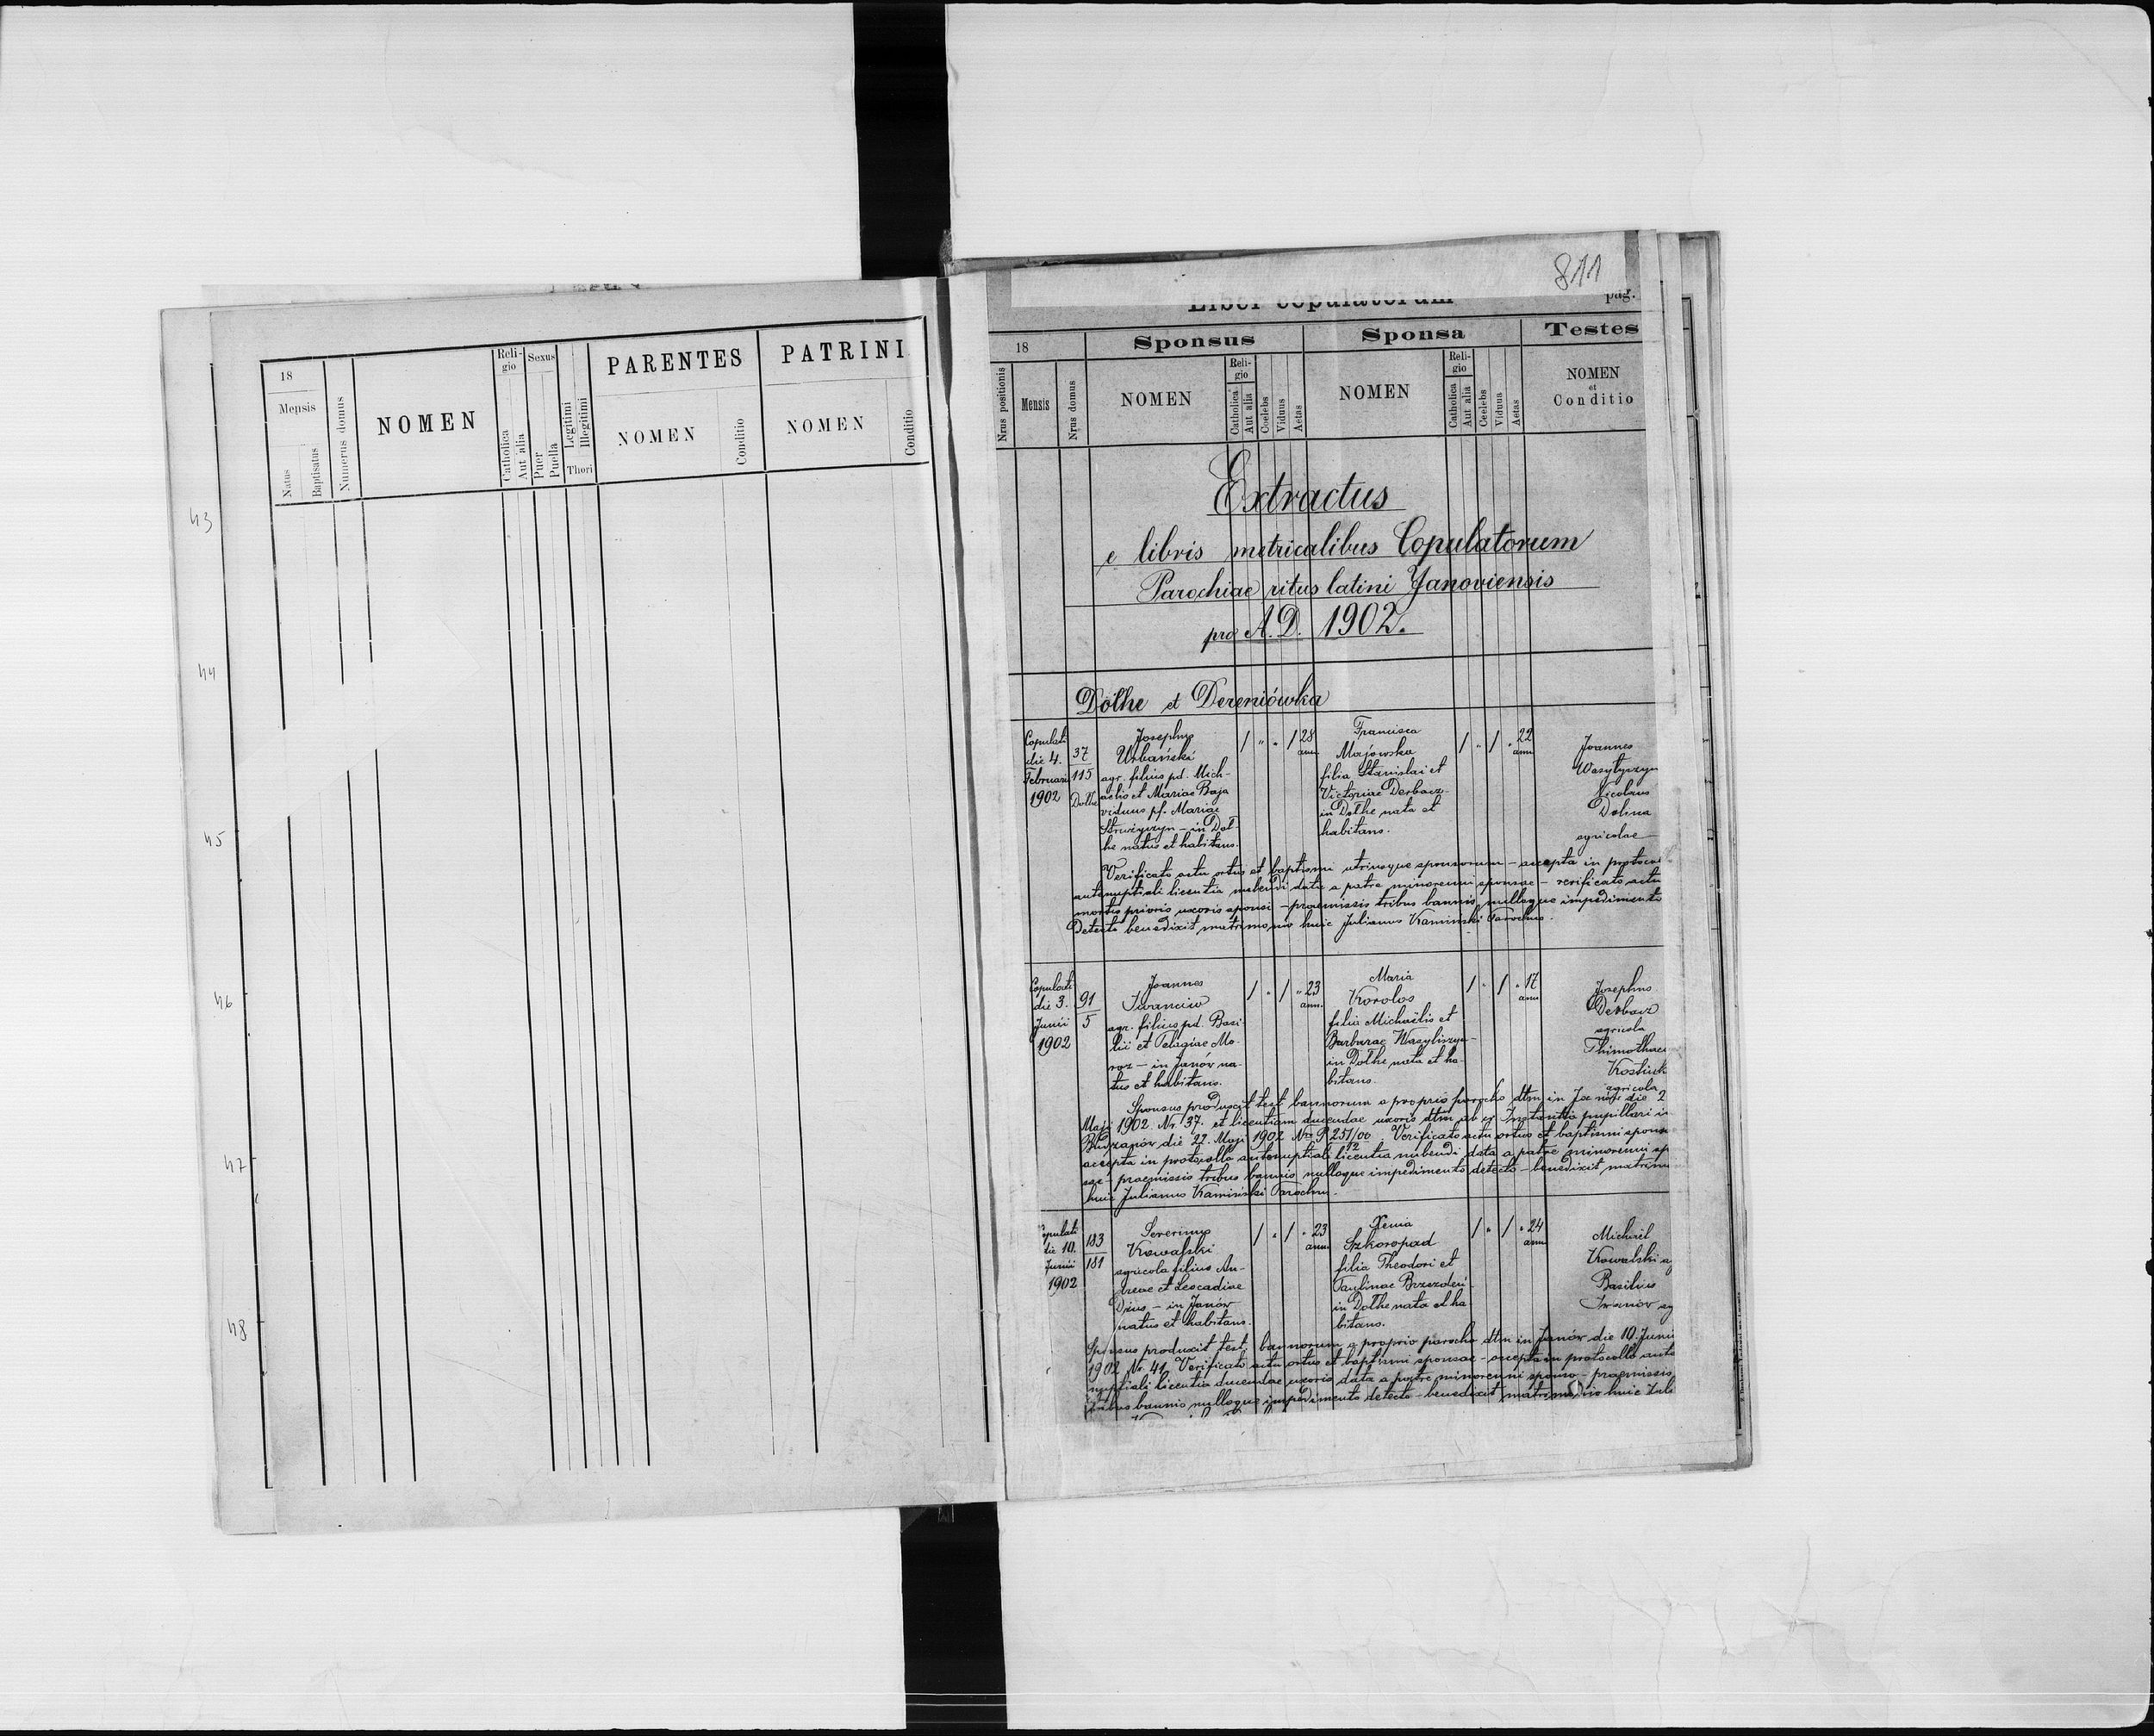 43
44
45
46
47
48
18
Mensis
Natus
Baptisatus
Numerus domus
NOMEN
Reli-
gio
Catholica
Aut alia
Sexus
Puer
Puella
Legitimi
Illegitimi
Thori
PARENTES
NOMEN
Conditio
PATRINI
NOMEN
Conditio
811
Liber copulatorum
pag.
18
Nrus positionis
Mensis
Nrus domus
Sponsus
NOMEN
Reli-
gio
Catholica
Aut alia
Coelebs
Viduus
Aetas
Sponsa
NOMEN
Reli-
gio
Catholica
Aut alia
Coelebs
Vidua
Aetas
Testes
NOMEN
et
Conditio
Extractus
e libris metricalibus Copulatorum
Parochiae ritus latini Janoviensis
pro A.D. 1902.
Dołhe et Dereniówka
Copulati
die 4.
Februarii
1902
37
115
Dołhe
Josephus
Urbański
agr. filius pd. Mich-
aelis et Mariae Baja
viduus pf. Mariae
in Doł-
he natus et habitans.
1 " " 1 28
ann.
Francisca
Majowska
filia Stanislai et
Victoriae Derbacz
in Dołhe nata et
habitans.
1 " 1 " 22
ann
Joannes
Wasylyczyn
Nicolaus
Dolina
agricolae
Verificato actu ortus et baptismi utriusque sponsorum - accepta in protocol
antenuptiali licentia nubendi data a patre minorenni sponsae - verificato actu
mortis prioris uxoris sponsi - praemissis tribus bannis nulloque impedimento
detecto benedixit matrimonio huic Julianus Kamiński Parochus.
Copulati
die 3.
Junii
1902
91
5
Joannes
Iwanciw
agr. filius pd. Basi-
lii et Pelagiae Mo-
roz - in Janów na-
tus et habitans.
1 " 1 " 23
ann.
Maria
Korolos
filia Michaëlis et
Barbarae Wasyliszyn -
in Dołhe nata et ha-
bitans.
1 " 1 " 17
ann
Josephus
Derbacz
agricola
Thimotheu
Kostiuk
agricola
Sponsus produxit test bannorum a proprio parocho dtm in die 2
Maji 1902 Nr. 37. et licentiam ducendae uxoris dtm ab Instantia pupillari in
Budzanów die 22. Maji 1902 Nr P 251/00 Verificato actu ortus et baptismi sponsa
12
accepta in protocollo antenuptiali licentia nubendi data a patre minorenni sp
sae - praemissis tribus bannis nulloque impedimento detecto - benedixit matrimo
huic Julianus Kamiński Parochus.
opulati
die 10.
Junii
1902
183
181
Severinus
Kowalski
agricola filius An-
dreae et Leocadiae
Dzius - in Janów
natus et habitans.
1 " 1 " 23
ann.
Xenia
Szkoropad
filia Theodori et
Paulinae
in Dołhe nata et ha
bitans.
1 " 1 " 24
ann
Michael
Kowalski ag
Basilius
Iwanów ag
Sponsus produxit test. bannorum a proprio parocho dtm in Janów die 10. Junii
1902 Nr. 41. Verificato actu ortus et baptismi sponsae - accepta in protocollo ante
nuptiali licentia ducendae uxoris data a patre minorenni sponso - praemissis
tribus bannis nulloque impedimento detecto - benedixit matrimonio huic Juli